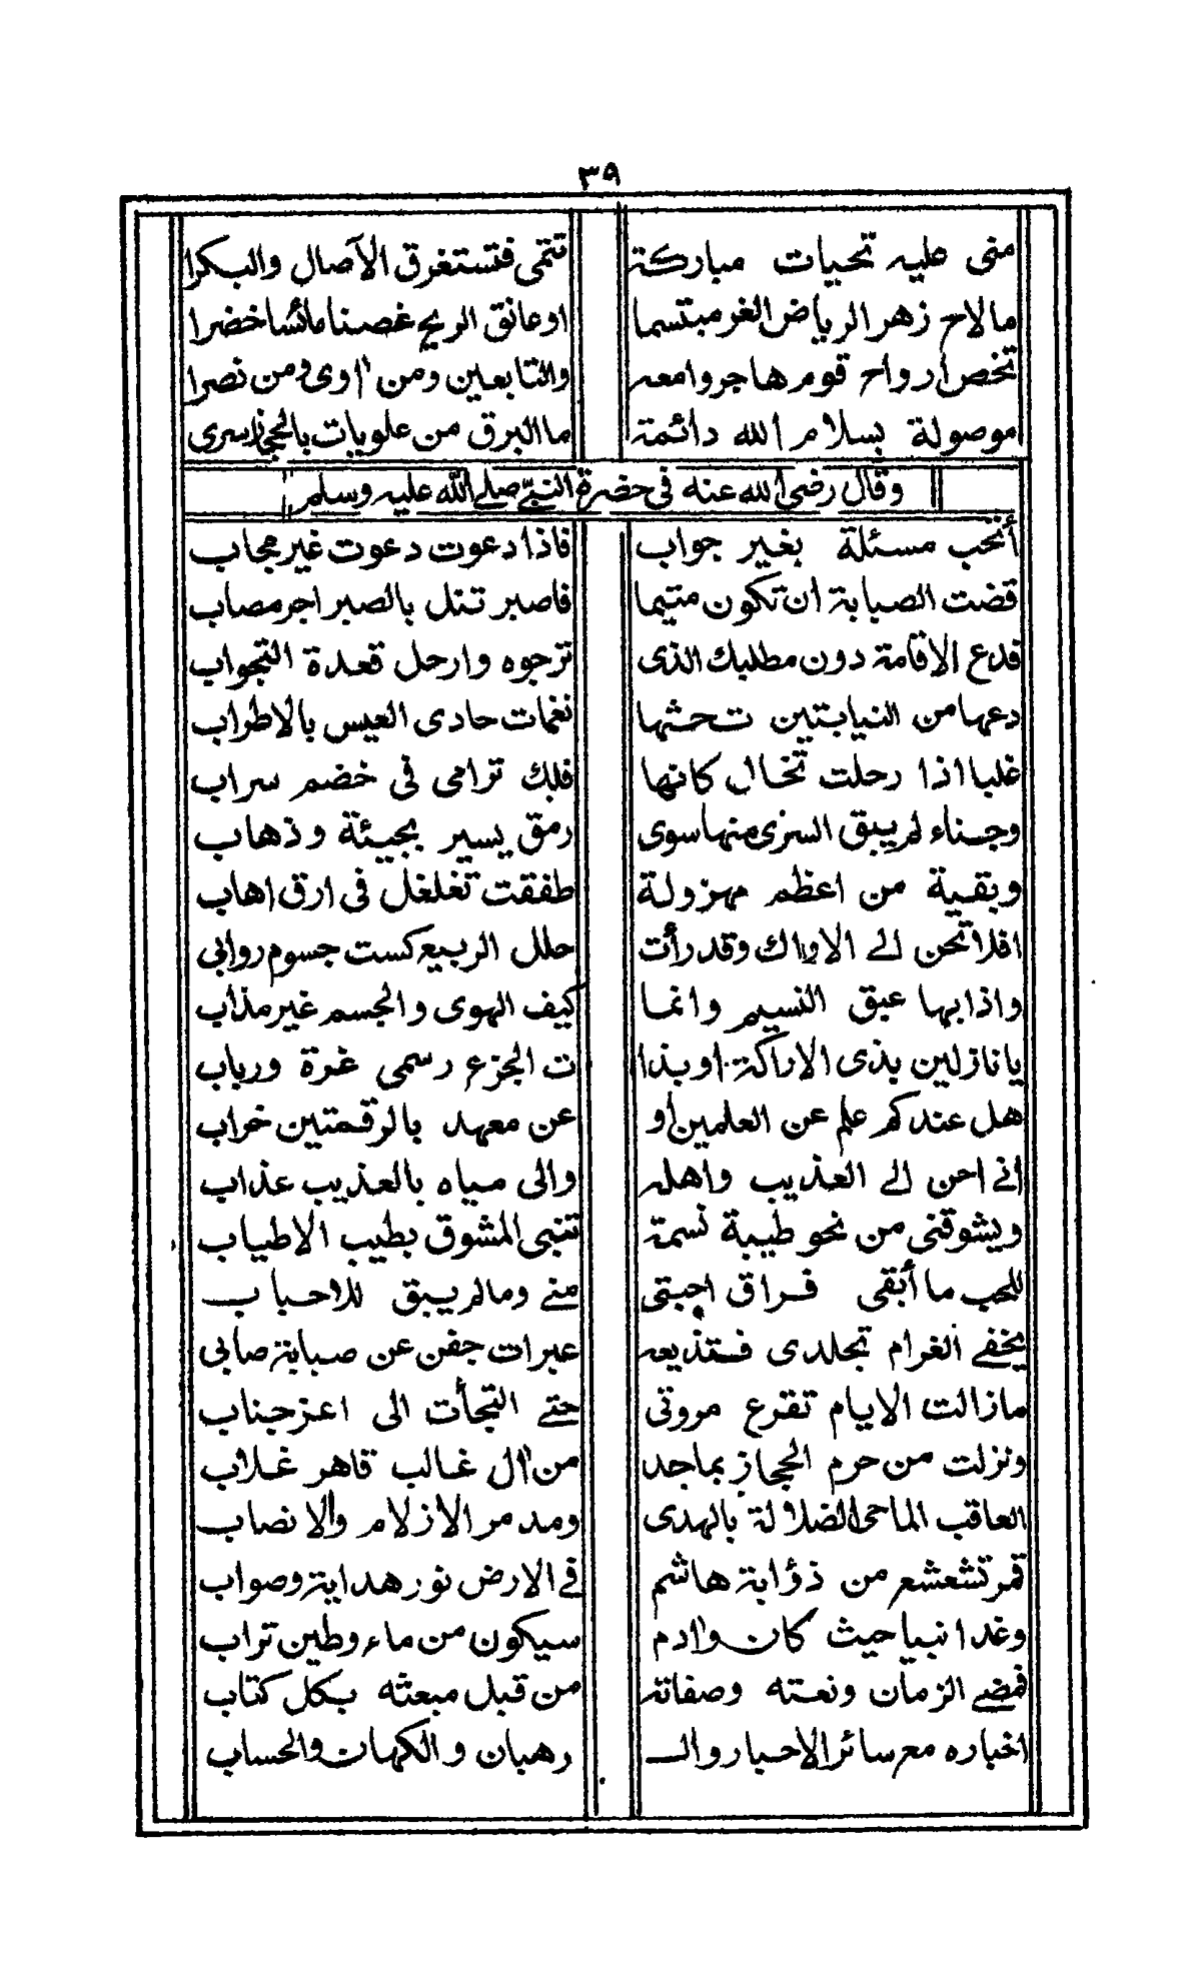 ٣٩
منى عليه تحيات مباركة تنمى فتستغرق الآصال والبكرا
مالاح زهر الرياض الغر مبتسما اوعانق الريح غصنا مائسا خضرا
تخص ارواح قوم هاجروا معه والتابعين ومن اوى ومن نصرا
موصولة بسلام الله دائمة ما البرق من علويات بالحجاز سرى
وقال رضى الله عنه فى حضرة النبيّ صلے الله عليه وسلم
أتخب مسئلة بغير جواب فاذا دعوت دعوت غير مجاب
قضت الصبابة ان تكون متيما فاصبر تنل بالصبر اجر مصاب
فدع الاقامة دون مطلبك الذى ترجوه وارحل قعدة التجواب
دعها من النيابتين تحثها نغمات حادى العيس بالاطراب
غلبا اذا رحلت تخال كانها فلك ترامى فى خضم سراب
وجناء لم يبق السرى منها سوى رمق يسير بجيئة وذهاب
وبقية من اعظم مهزولة طفقت تغلغل فى ارق اهاب
افلا تحن الے الاراك وقد رأت حلل الربيع كست جسوم روابى
واذابها عبق النسيم وانما كيف الهوى والجسم غير مذاب
يا نازلين بذى الاراكة او بذا ت الجزع رسمى غرة ورباب
هل عندكم علم عن العلمين أو عن معهد بالرقمتين خراب
انے احن الے العذيب واهله والى مياه بالعذيب عذاب
ويشوقنى من نحو طيبة نسمة تنبى المشوق بطيب الاطياب
للحب ما أبقى فراق احبتى منے ومالم يبق للاحباب
يخفے الغرام تجلدى فتذيعه عبرات جفن عن صبابة صابى
مازالت الايام تقرع مروتى حتے التجأت الى اعز جناب
ونزلت من حرم الحجاز بماجد من ال غالب قاهر غلاب
العاقب الماحى الضلالة بالهدى ومدمر الازلام والانصاب
قمر تشعشع من ذؤابة هاشم فے الارض نور هداية وصواب
وغدا نبيا حيث كان وادم سيكون من ماء وطين تراب
فمضے الزمان ونعته وصفاته من قبل مبعثه بكل كتاب
اخباره مع سائر الاحبار والـ رهبان والكهان والحساب